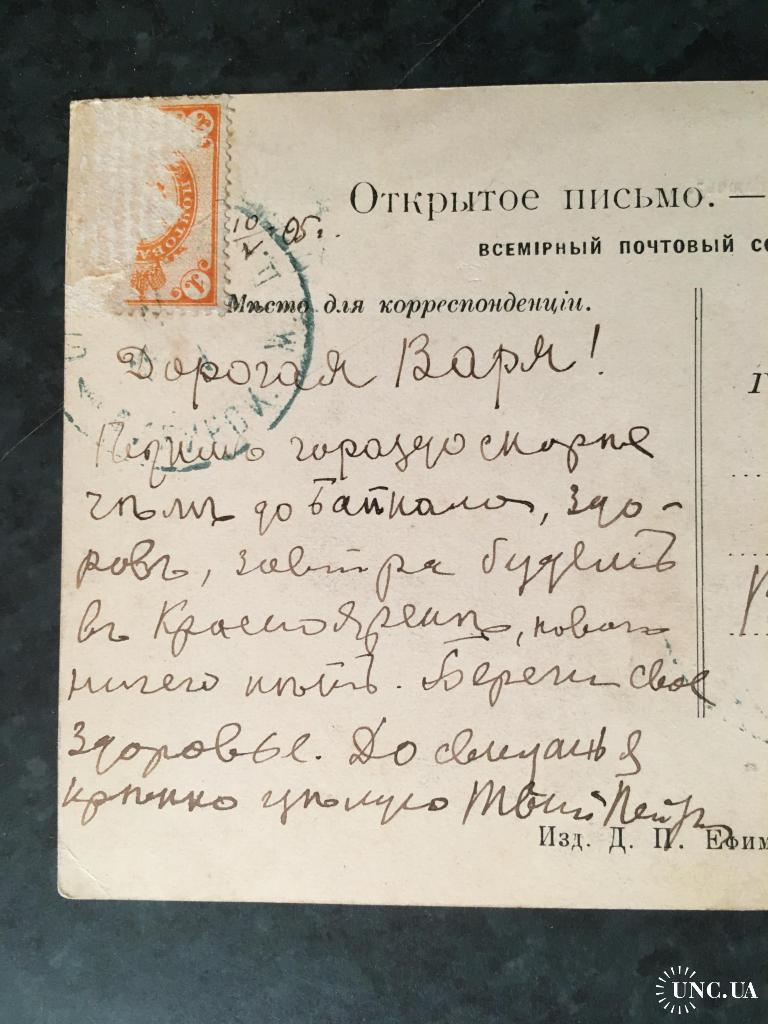 Открытое письмо. —
ВСЕМІРНЫЙ ПОЧТОВЫЙ СО
10/X 05 г.
Мѣсто для корреспонденціи.
ПОЧТОВА
1
Дорогая Варя!
гораздо скорѣе
чѣмъ до Байкала, здо-
ровъ, завтра будемъ
въ Красноярскѣ, новаго
ничего нѣтъ. Береги свое
здоровье. До свиданья
крѣпко цѣлую Твой Петръ
Изд. Д. П. Ефим
UNC.UA